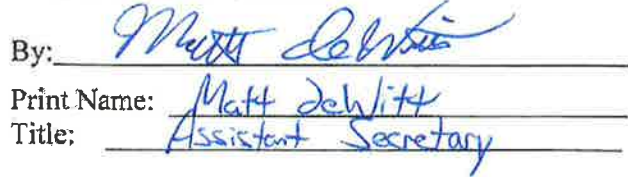 By: Matt deWitt
Print Name: Matt deWitt
Title: Assistant Secretary